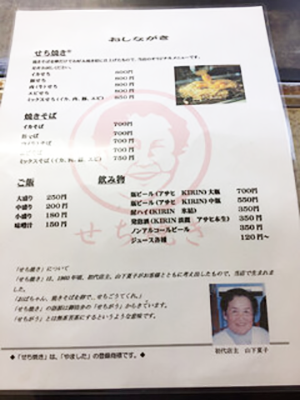 おしながき
せち焼き®
イカせち 800円
豚せち 800円
肉(牛)せち 800円
エビせち 800円
ミックスせち(イカ、肉、豚、エビ) 850円
焼きそば
イカそば 700円
豚そば 700円
700円
700円
ミックスそば(イカ、肉、豚、エビ) 750円
ご飯
大盛り 250円
中盛り 200円
小盛り 180円
味噌汁 150円
飲み物
瓶ビール(アサヒ KIRIN)大瓶 700円
瓶ビール(アサヒ KIRIN)中瓶 550円
酎ハイ(KIRIN 氷結) 350円
発泡酒(KIRIN 淡麗 アサヒ&生) 350円
ノンアルコールビール 350円
ジュース各種 120円~
せち焼き
「せち焼き」について
「せち焼き」は、1960年頃、初代店主、山下菓子がお客様とともに考え出したもので、当店で生まれました。
「おばちゃん、焼きそばを卵で、せちごうてくれ。」
「せち焼き」の語源は御坊弁の「せちがう」からきています。
「せちがう」とは無茶苦茶にするというような意味です。
初代店主 山下菓子
◆「せち焼き」は、「やました」の登録商標です。◆